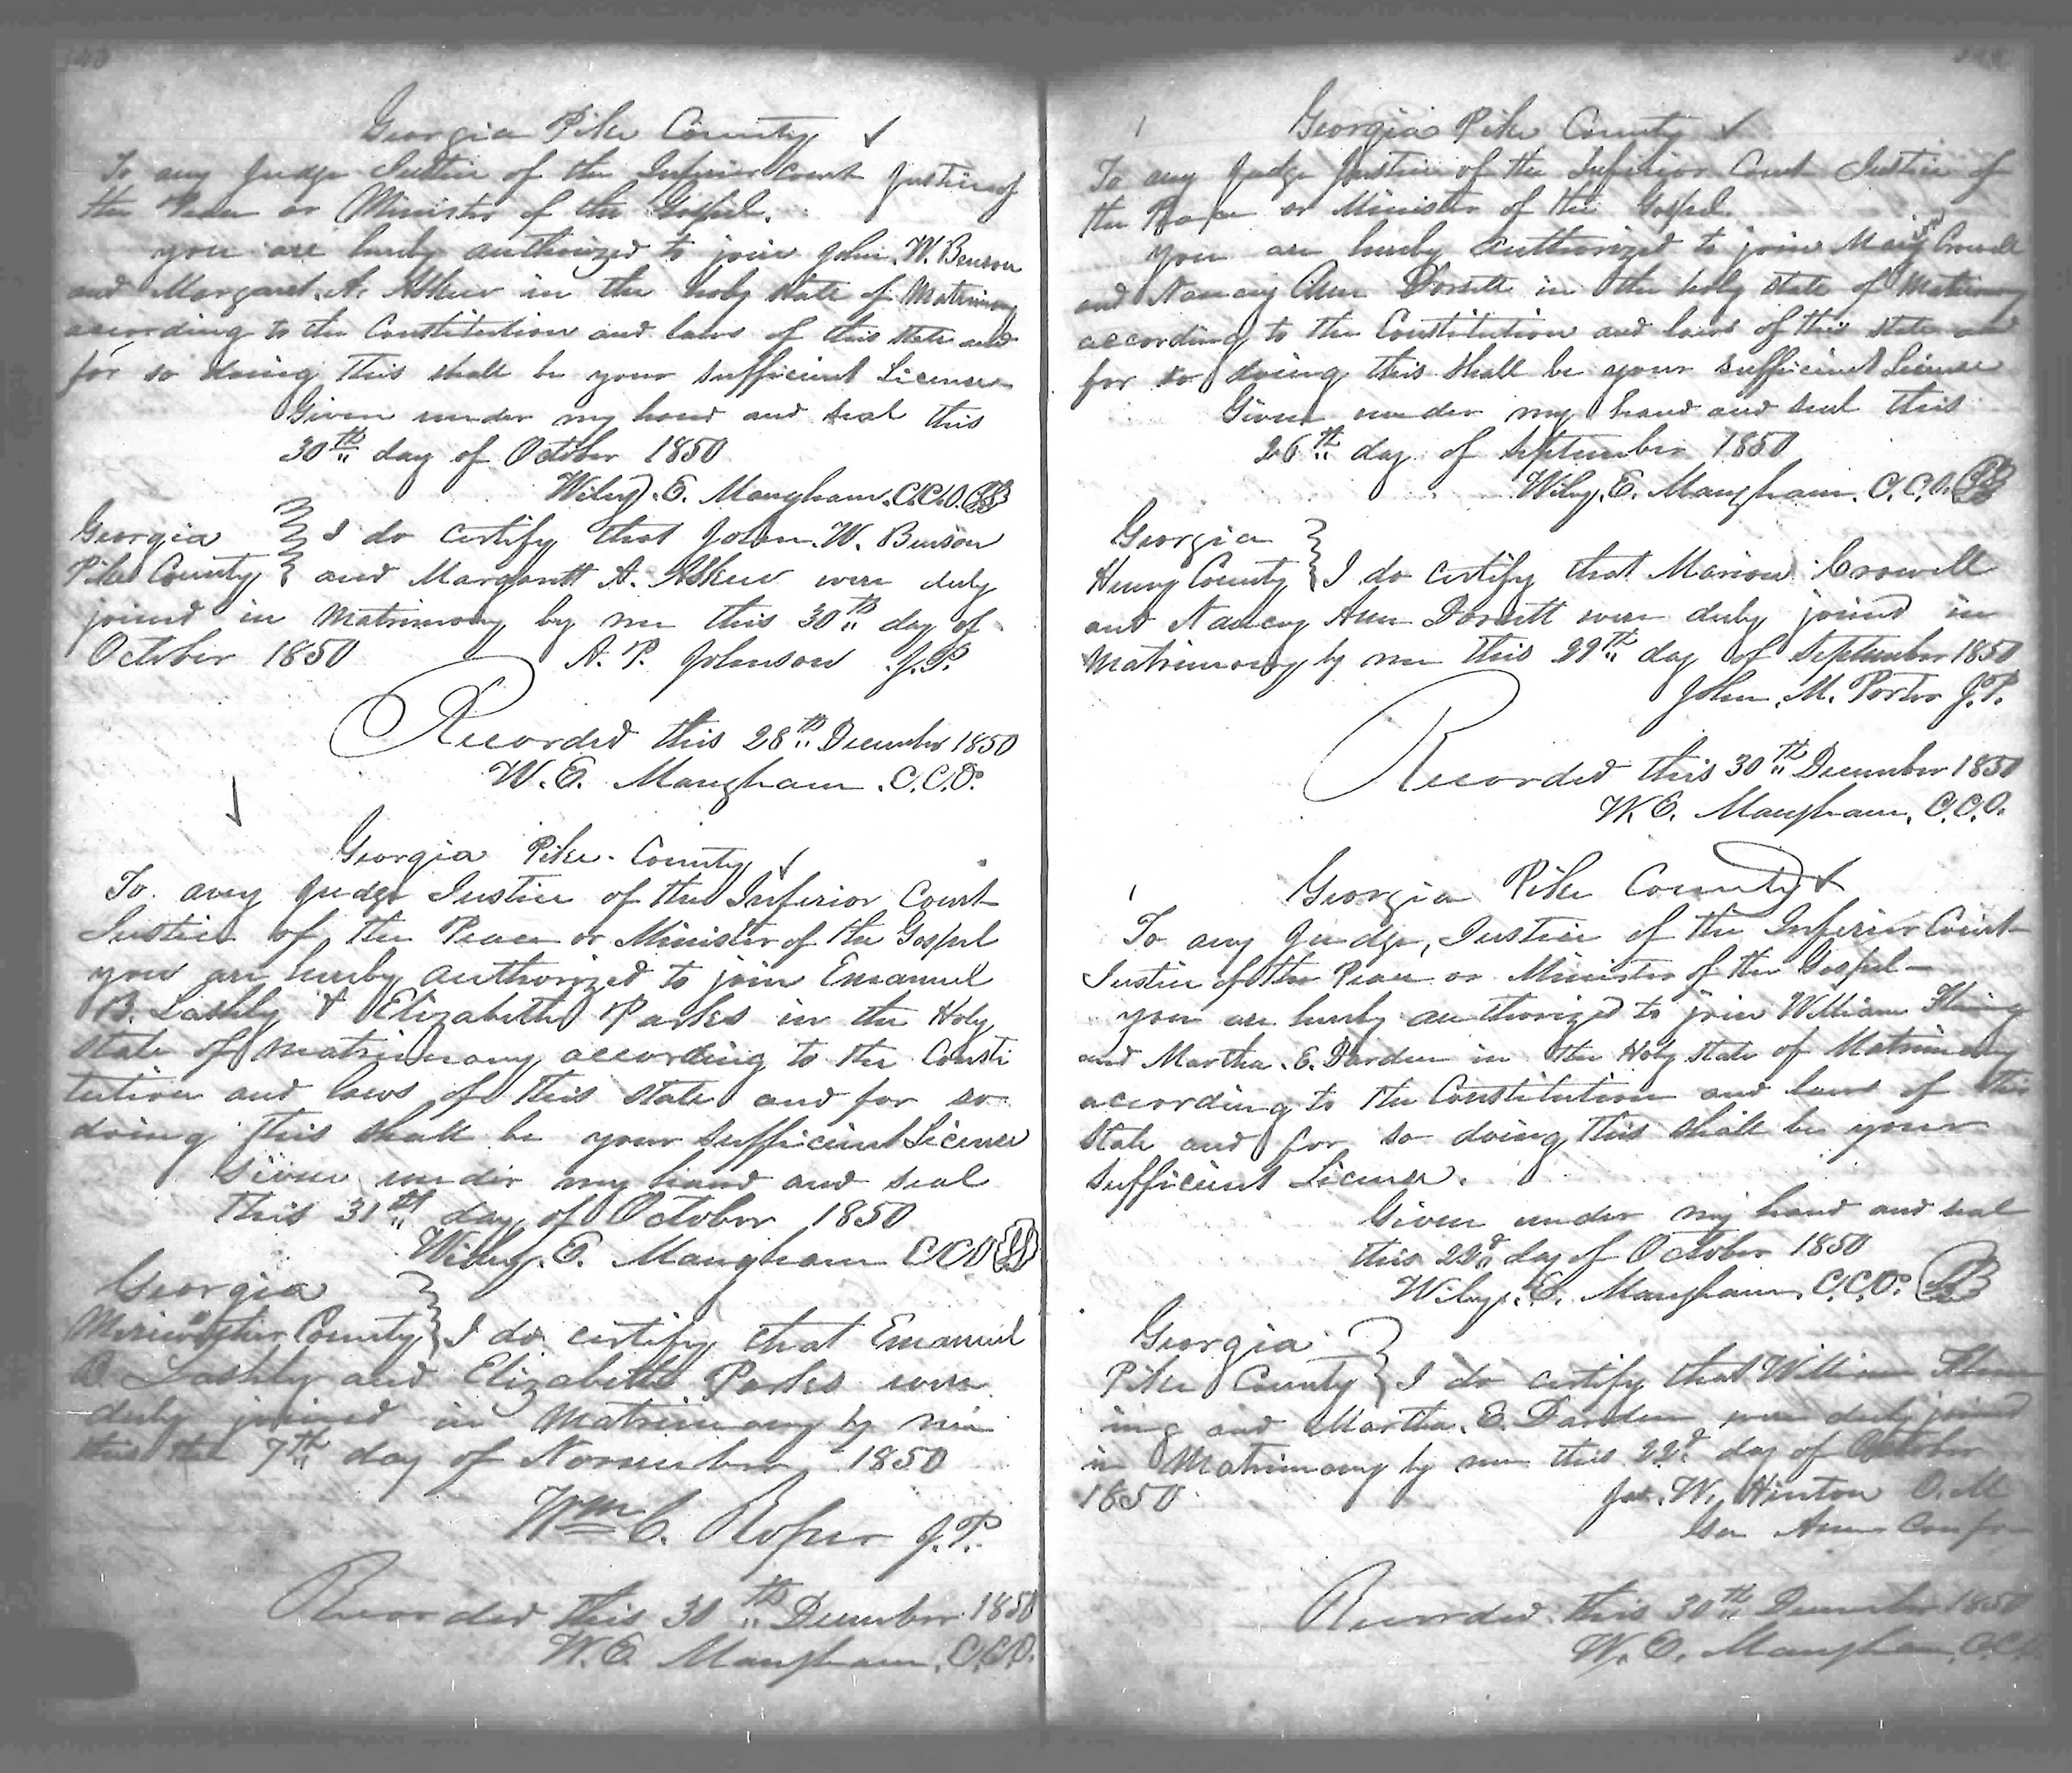 Georgia Pike County
To any Judge Justice of the Inferior Court Justice of
the Peace or Minister of the Gospel.
you are hereby authorized to join John. W. Benson
and Margaret. A. Askew in the holy state of Matrimony
according to the Constitution and laws of this state and
for so doing this shall be your sufficient License
Given under my hand and seal this
30th day of October 1850
Wiley. E. Mangham. C.C.O.
Georgia
Pike County } I do certify that John. W. Benson
and Margarett A. Askew were duly
joined in Matrimony by me this 30th day of
October 1850 A. P. Johnson J.P.
Recorded this 28th December 1850
W. E. Mangham. C.C.O.
Georgia Pike County
To any Judge Justice of the Inferior Court
Justice of the Peace or Minister of the Gospel
you are hereby authorized to join Emanuel
B. Lashly & Elizabeth Parks in the Holy
state of matrimony according to the Consti
tution and laws of this state and for so
doing this shall be your sufficient License
Given under my hand and seal
this 31th day of October 1850
Wiley. E. Mangham C.C.O
Georgia
County } I do certify that Emanuel
B Lashly and Elizabeth Parks were
duly joined in Matrimony by me
this the 7th day of November 1850
Wm C. Roper J.P.
Recorded this 30th December 1850
W. E. Mangham. C.C.O.
Georgia Pike County
To any Judge Justice of the Inferior Court Justice of
the Peace or Minister of the Gospel.
you are hereby authorized to join Crowell
and Nancy Ann Dorsett in the holy state of Matrimony
according to the Constitution and laws of this state and
for so doing this shall be your sufficient License
Given under my hand and seal this
26th day of September 1850
Wiley. E. Mangham. C.C.O.
Georgia
Henry County } I do certify that Marion Crowell
and Nancy Ann Dorsett were duly joined in
Matrimony by me this 29th day of September 1850
John. M. Porter J.P.
Recorded this 30th December 1850
W. E. Mangham. C.C.O.
Georgia Pike County
To any Judge, Justice of the Inferior Court
Justice of the Peace or Minister of the Gospel
you are hereby authorized to join William
and Martha. E. Darden in the Holy state of Matrimony
according to the Constitution and laws of this
state and for so doing this shall be your
sufficient License.
Given under my hand and seal
this 22d day of October 1850
Wiley. E. Mangham. C.C.O.
Georgia
Pike County } I do certify that William Flem
ing and Martha. E. Darden were duly joined
in Matrimony by me this 22d day of October
1850 Jas. W. Hinton O. M
Geo Ann Conf
Recorded this 30th December 1850
W. E. Mangham. C.C.